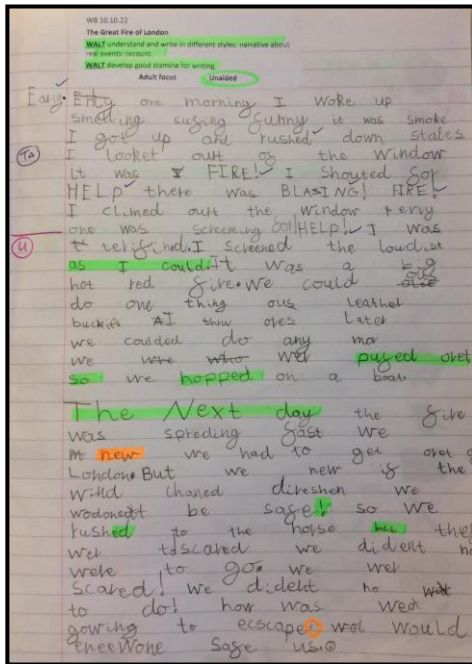 WB 10.10.22
The Great Fire of London
WALT understand and write in different styles: narrative about
real events: recount.
WALT develop good stamina for writing.
Adult focus Unaided
Early Erly one morning I woke up
smelling suging funny it was smoke
I got up and rushed down stales
Ta I looket out of the window
it was FIRE! I shouted for
HELP there was BLASING! FIRE!
I climed out the window terry
one was screeming HELP! I was
U terifind. I screened the loudist
as I could. It was a big
hot red fire. We could
do one thing ous leathel
buckits I thru ores later
we coulded do any mor
we wer pused oret
so we hopped on a boat.
The Next day the fire
was spreding fast we
new we had to get over
London. But we new if the
wind chaned direshen we
wodonedt be safe! so we
rushed to the horse but the
wer toscared we dident
were to go. we wer
scared! we dident no
to do! how was
gowing to ecscape wol would
eneewone safe us.